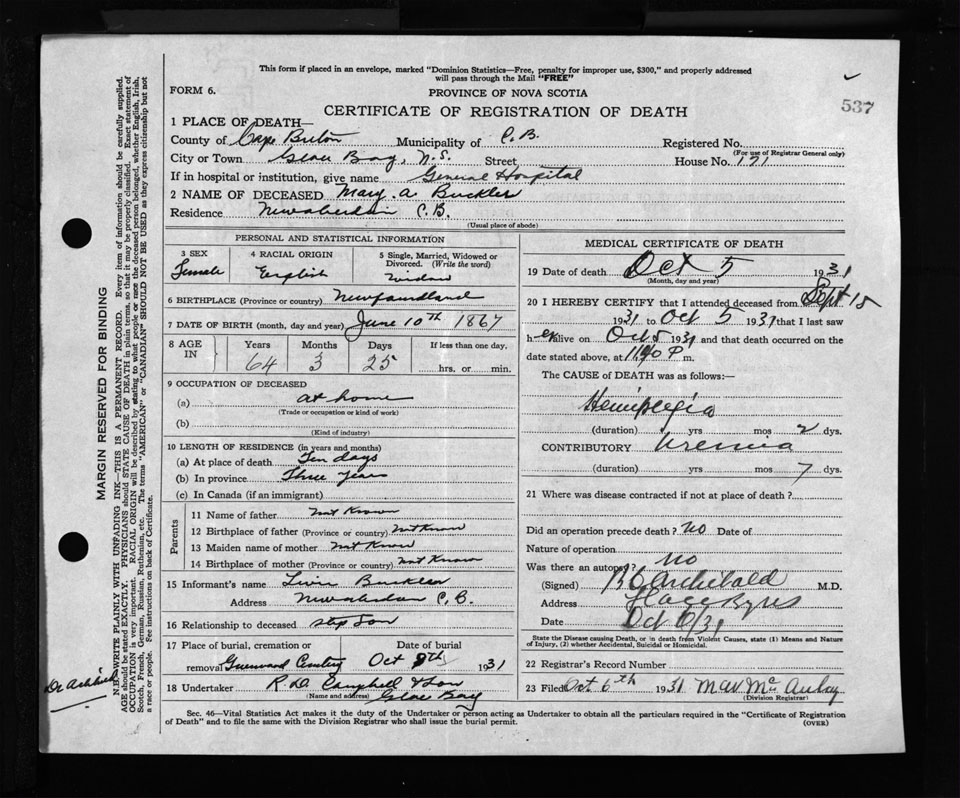 This form if placed in an envelope, marked "Dominion Statistics—Free, penalty for improper use, $300," and properly addressed
will pass through the Mail "FREE"
FORM 6.
PROVINCE OF NOVA SCOTIA
537
CERTIFICATE OF REGISTRATION OF DEATH
1 PLACE OF DEATH—
County of Cape Breton Municipality of C.B. Registered No.
(For use of Registrar General only)
City or Town Glace Bay, N.S. Street House No. 171
If in hospital or institution, give name General Hospital
2 NAME OF DECEASED Mary. A. Buckler
Residence Newaberdain C.B.
(Usual place of abode)
PERSONAL AND STATISTICAL INFORMATION
3 SEX 4 RACIAL ORIGIN 5 Single, Married, Widowed or
Divorced. (Write the word)
Female English widow
6 BIRTHPLACE (Province or country) Newfoundland
7 DATE OF BIRTH (month, day and year) June 10th 1867
8 AGE IN Years Months Days If less than one day,
64 3 25 hrs. or min.
9 OCCUPATION OF DECEASED
(a) at home
(Trade or occupation or kind of work)
(b)
(Kind of industry)
10 LENGTH OF RESIDENCE (in years and months)
(a) At place of death Ten days
(b) In province Three years
(c) In Canada (if an immigrant)
Parents
11 Name of father not Known
12 Birthplace of father (Province or country) not Known
13 Maiden name of mother not Know
14 Birthplace of mother (Province or country) not Known
15 Informant's name Buckler
Address Newaberdain C.B.
16 Relationship to deceased step Son
17 Place of burial, cremation or Date of burial
removal Greenwood Oct 8th 1931
18 Undertaker R D Campbell & Son
(Name and address) Glace Bay
MEDICAL CERTIFICATE OF DEATH
19 Date of death Oct 5 1931
(Month, day and year)
20 I HEREBY CERTIFY that I attended deceased from Sept 15
1931 to Oct 5 1931 that I last saw
her alive on Oct 5 1931 and that death occurred on the
date stated above, at P m.
The CAUSE of DEATH was as follows:—
Hemiplegia
(duration) yrs mos 2 dys.
CONTRIBUTORY Uremia
(duration) yrs mos 7 dys.
21 Where was disease contracted if not at place of death?
Did an operation precede death? no Date of
Nature of operation
Was there an autopsy? no
(Signed) Archibald M.D.
Address
Date Oct 6/31
State the Disease causing Death, or in death from Violent Causes, state (1) Means and Nature
of Injury, (2) whether Accidental, Suicidal or Homicidal.
22 Registrar's Record Number
23 Filed Oct 6th 1931 McAulay
(Division Registrar)
Sec. 46—Vital Statistics Act makes it the duty of the Undertaker or person acting as Undertaker to obtain all the particulars required in the "Certificate of Registration
of Death" and to file the same with the Division Registrar who shall issue the burial permit.
(OVER)
MARGIN RESERVED FOR BINDING
N.B.—WRITE PLAINLY WITH UNFADING INK—THIS IS A PERMANENT RECORD. Every item of information should be carefully supplied.
AGE should be stated EXACTLY. PHYSICIANS should STATE CAUSE OF DEATH in plain terms, so that it may be properly classified. Exact statement of
OCCUPATION is very important. RACIAL ORIGIN will be described by stating to what people or race the deceased person belonged, whether English, Irish,
Scotch, French, German, Russian, Ruthenian, etc. The terms "AMERICAN" or "CANADIAN" SHOULD NOT BE USED as they express citizenship but not
a race or people. See instructions on back of Certificate.
Dr Archibald